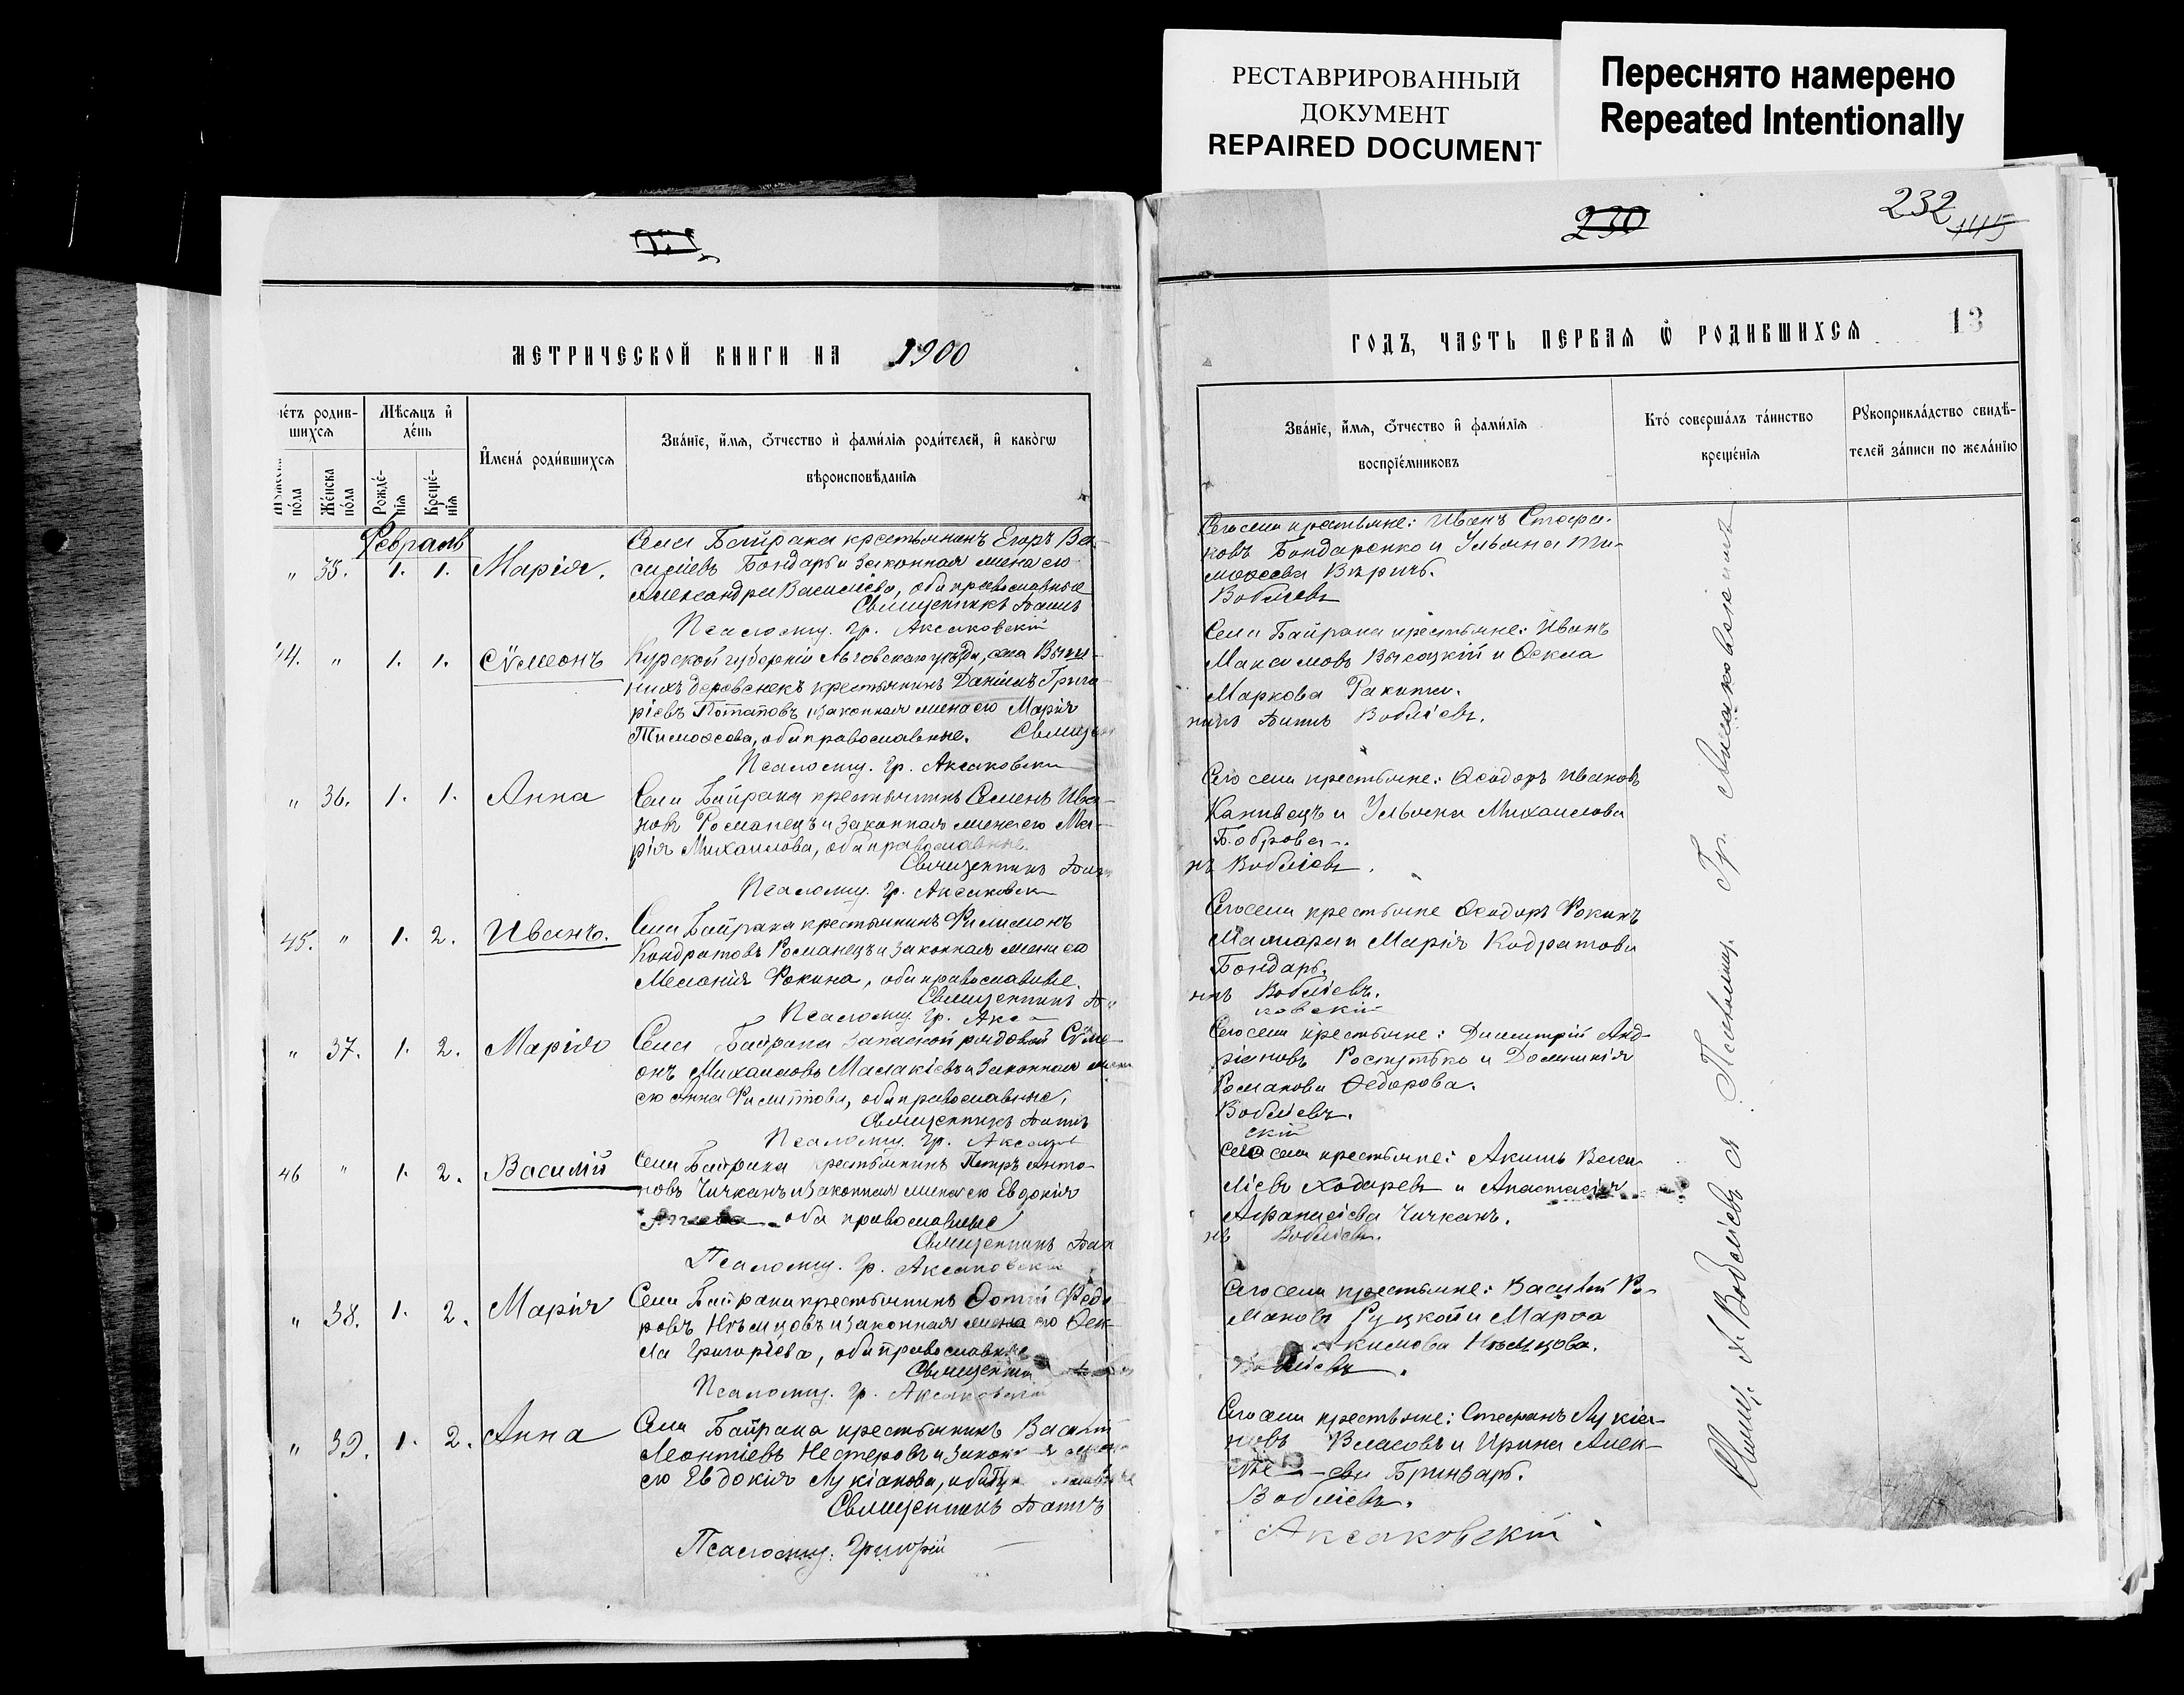 РЕСТАВРИРОВАННЫЙ
ДОКУМЕНТ
REPAIRED DOCUMENT
Переснято намерено
Repeated Intentionally
230
232
1115
МЕТРИЧЕСКОЙ КНИГИ НА 1900
ГОДЪ, ЧАСТЬ ПЕРВАЯ Ѡ РОДИВШИХСЯ
13
родив-
шихся
Мѣсяцъ и
день
Имена родившихся
Званіе, имя, отчество и фамилія родителей, и какогѡ
вѣроисповѣданія
пола
Женска
пола
Рожде-
нія
Креще-
нія
Званіе, имя, отчество и фамилія
воспріемниковъ
Кто совершалъ таинство
крещенія
Рукоприкладство свидѣ-
телей записи по желанію
Февраль
" 35. 1. 1. Марія.
Села Байрака крестьянинъ Егоръ Ва-
силіевъ Бондарь и законная жена его
Александра Василіева, оба православные
Священникъ
Псаломщ. Гр. Аксаковскій
Сего села крестьяне: Иванъ Стефа-
новъ Бондаренко и Ульяна Ти-
мофеева
Воблiевъ
44. " 1. 1. Сѵмеонъ
Курской губерніи Льговскаго уѣзда, села
деревенекъ крестьянинъ Даніилъ Григо-
ріевъ Потаповъ и законная жена его Марія
Тимофеева, оба православные. Священ
Псаломщ. Гр. Аксаковски
Села Байрака крестьяне: Иванъ
Максимовъ Высоцкій и Ѳекла
Маркова Ракити.
Воблiевъ.
" 36. 1. 1. Анна
Села Байрака крестьянинъ Семенъ Ива-
новъ Романецъ и законная жена его Ма-
рія Михаилова, оба православные.
Священникъ
Псаломщ. Гр. Аксаковски
Сего села крестьяне: Ѳеодоръ Ивановъ
Канивецъ и Ульяна Михаилова
Боброва.
нъ Воблiевъ.
45. " 1. 2. Иванъ.
Села Байрака крестьянинъ Филимонъ
Кондратовъ Романецъ и законная жена его
Меланія Фокина, оба православные.
Священникъ
Псаломщ. Гр. Акса
Сего села крестьяне Ѳеодоръ Фокинъ
и Марія Кодратова
Бондарь.
Воблiевъ.
ковскій
" 37. 1. 2. Марія
Села Байрака запасной рядовой Сѵме-
онъ Михаиловъ Малакіевъ и законная жена
его Анна Филиппова, оба православные,
Священникъ
Псаломщ. Гр. Аксаков
Сего села крестьяне: Димитрій Анд-
ріановъ и Домникія
Романова Ѳедорова.
Воблiевъ.
скій
46 " 1. 2. Василій
Села Байрака крестьянинъ Петръ Анто-
новъ Чичканъ и законная жена его Евдокія
оба православные
Священникъ
Псаломщ. Гр. Аксаковскій
Сего села крестьяне: Акимъ Васи-
ліевъ Ходыревъ и Анастасія
Афанасіева Чичканъ.
нъ Воблiевъ.
" 38. 1. 2. Марія
Села Байрака крестьянинъ Фотій Ѳедо-
ровъ Нѣмцовъ и законная жена его Ѳек-
ла Григоріева, оба православные
Священни
Псаломщ. Гр. Аксаковскій
Сего села крестьяне: Василій Ро-
мановъ Руцкой и Марѳа
Акимова Нѣмцова.
Воблiевъ.
" 39. 1. 2. Анна
Села Байрака крестьянинъ Василій
Леонтіевъ Нестеровъ и закон
его Евдокія Лукіанова, оба
Священникъ
Псаломщ. Григорій
Сего села крестьяне: Стефанъ Лукіа-
новъ Власовъ и Ирина Алек-
Бринзарь.
Воблiевъ.
Аксаковскій
Свящ. Воблiевъ Псаломщ. Гр. Аксаковскій